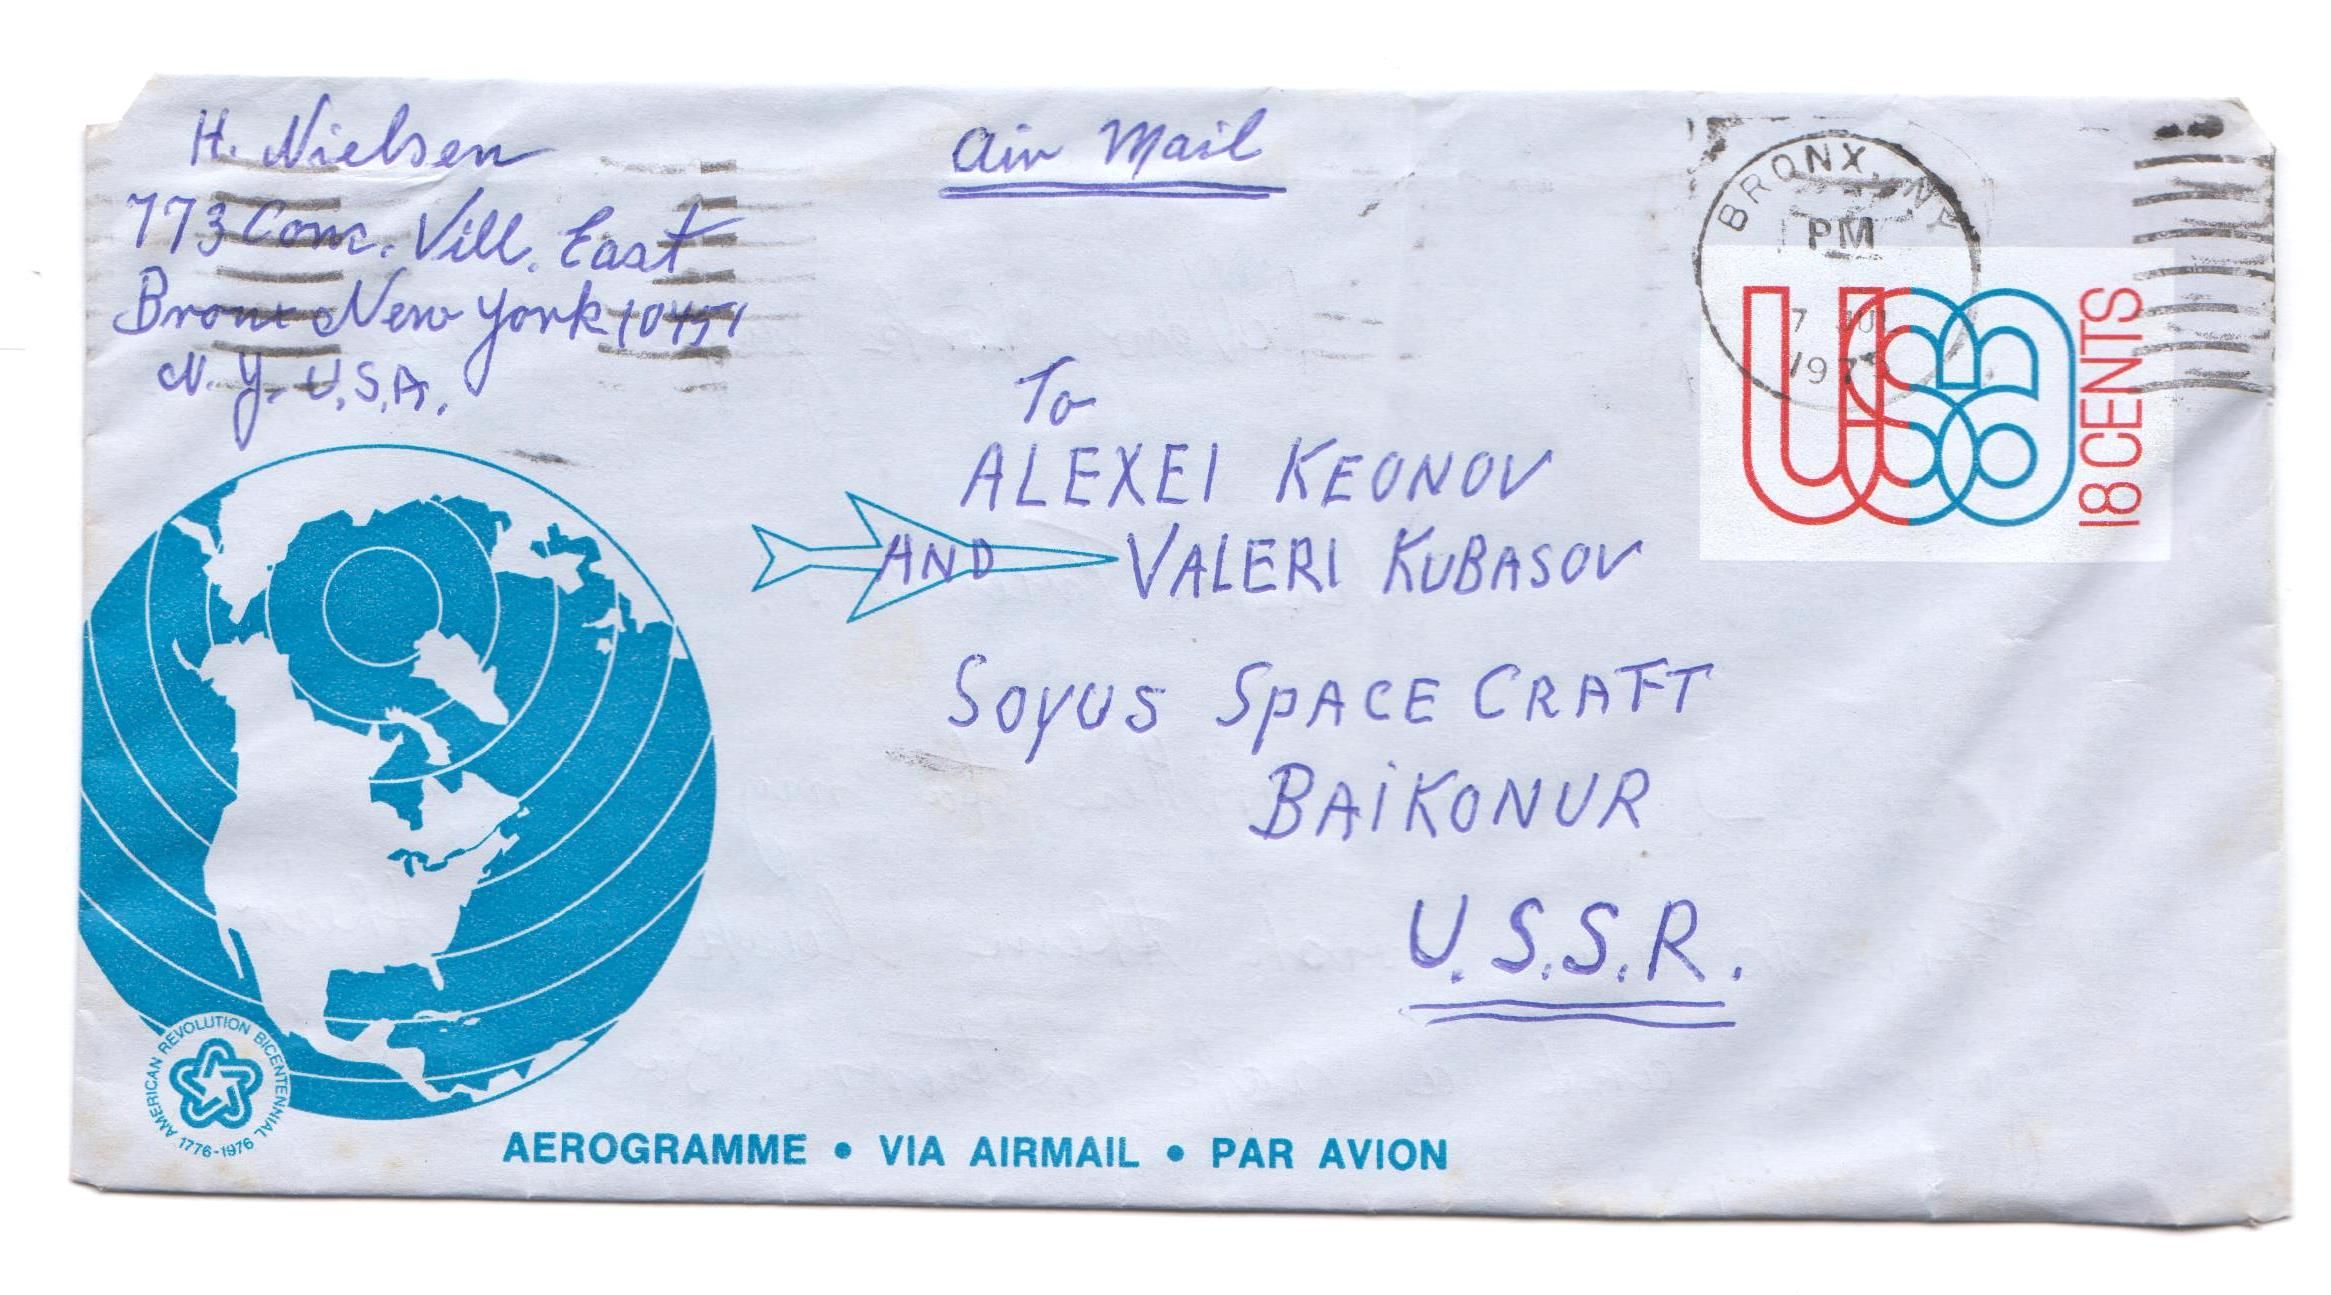 H. Nielsen
773 Conc. Vill. East
Bronx New York 10451
N.Y. U.S.A.
Air Mail
BRONX, NY
PM
7
197
USA
18 CENTS
To
ALEXEI KEONOV
AND VALERI KUBASOV
SOYUS SPACE CRAFT
BAIKONUR
U.S.S.R.
AMERICAN REVOLUTION BICENTENNIAL
1776-1976
AEROGRAMME • VIA AIRMAIL • PAR AVION